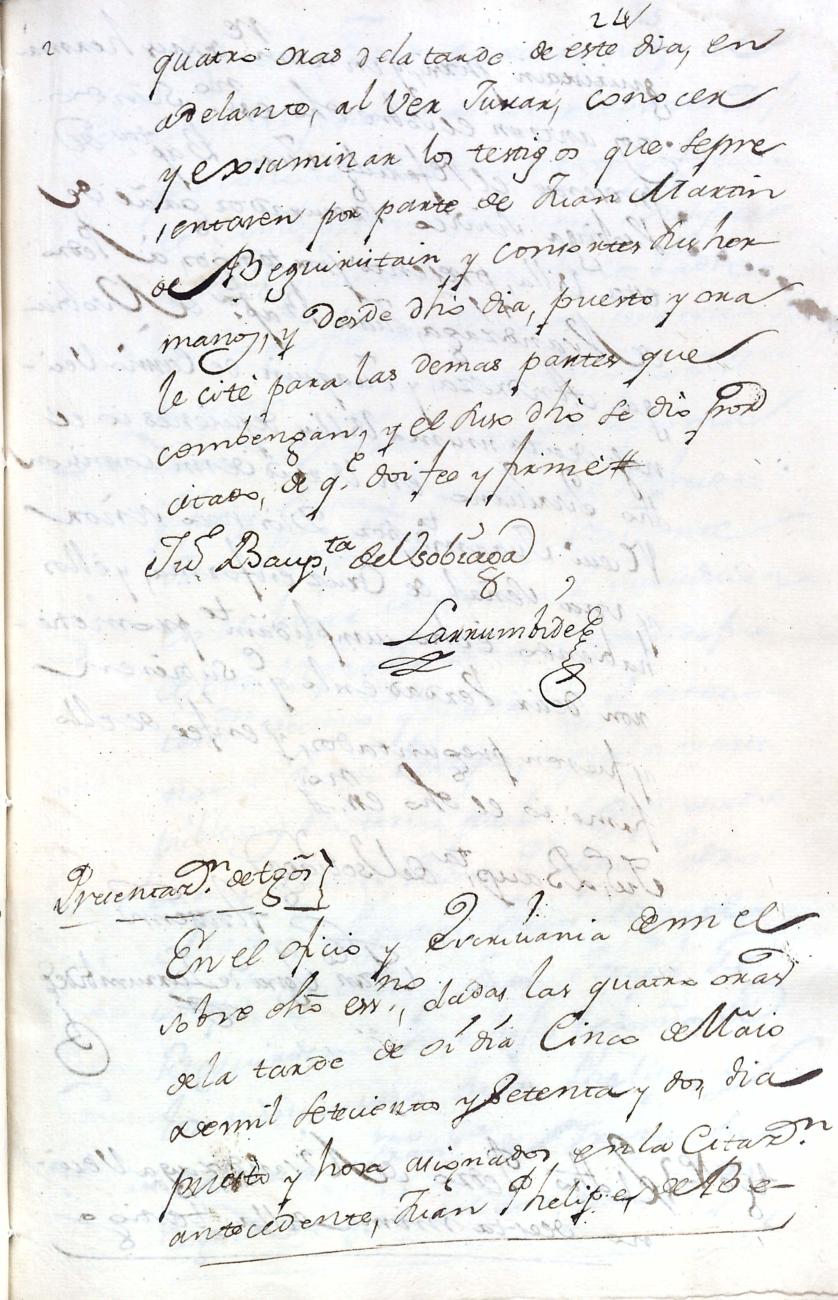 24
quatro oras dela tarde de este dia, en
adelante, al Ver Jurar, conocer
y exsaminar los testigos que sepre
sentasen por parte de Juan Martin
de Beguiristain y consortes sus her
manos, y desde dho dia, puesto y ora
le cité para las demas partes que
combengan, y el suso dho se dio por
citado, de q.e doi feo y firmé #
Ju.n Baup.ta de Usobiaga
Larrumbide
Presentaz.n de tgos
En el oficio y Escrivania de mi el
sobre dho ess.no, dadas las quatro oras
dela tarde de oi dia Cinco de Maio
de mil setecientos y setenta y dos, dia
puesto y hora asignados en la Citaz.n
antecedente, Juan Phelipe de Be-